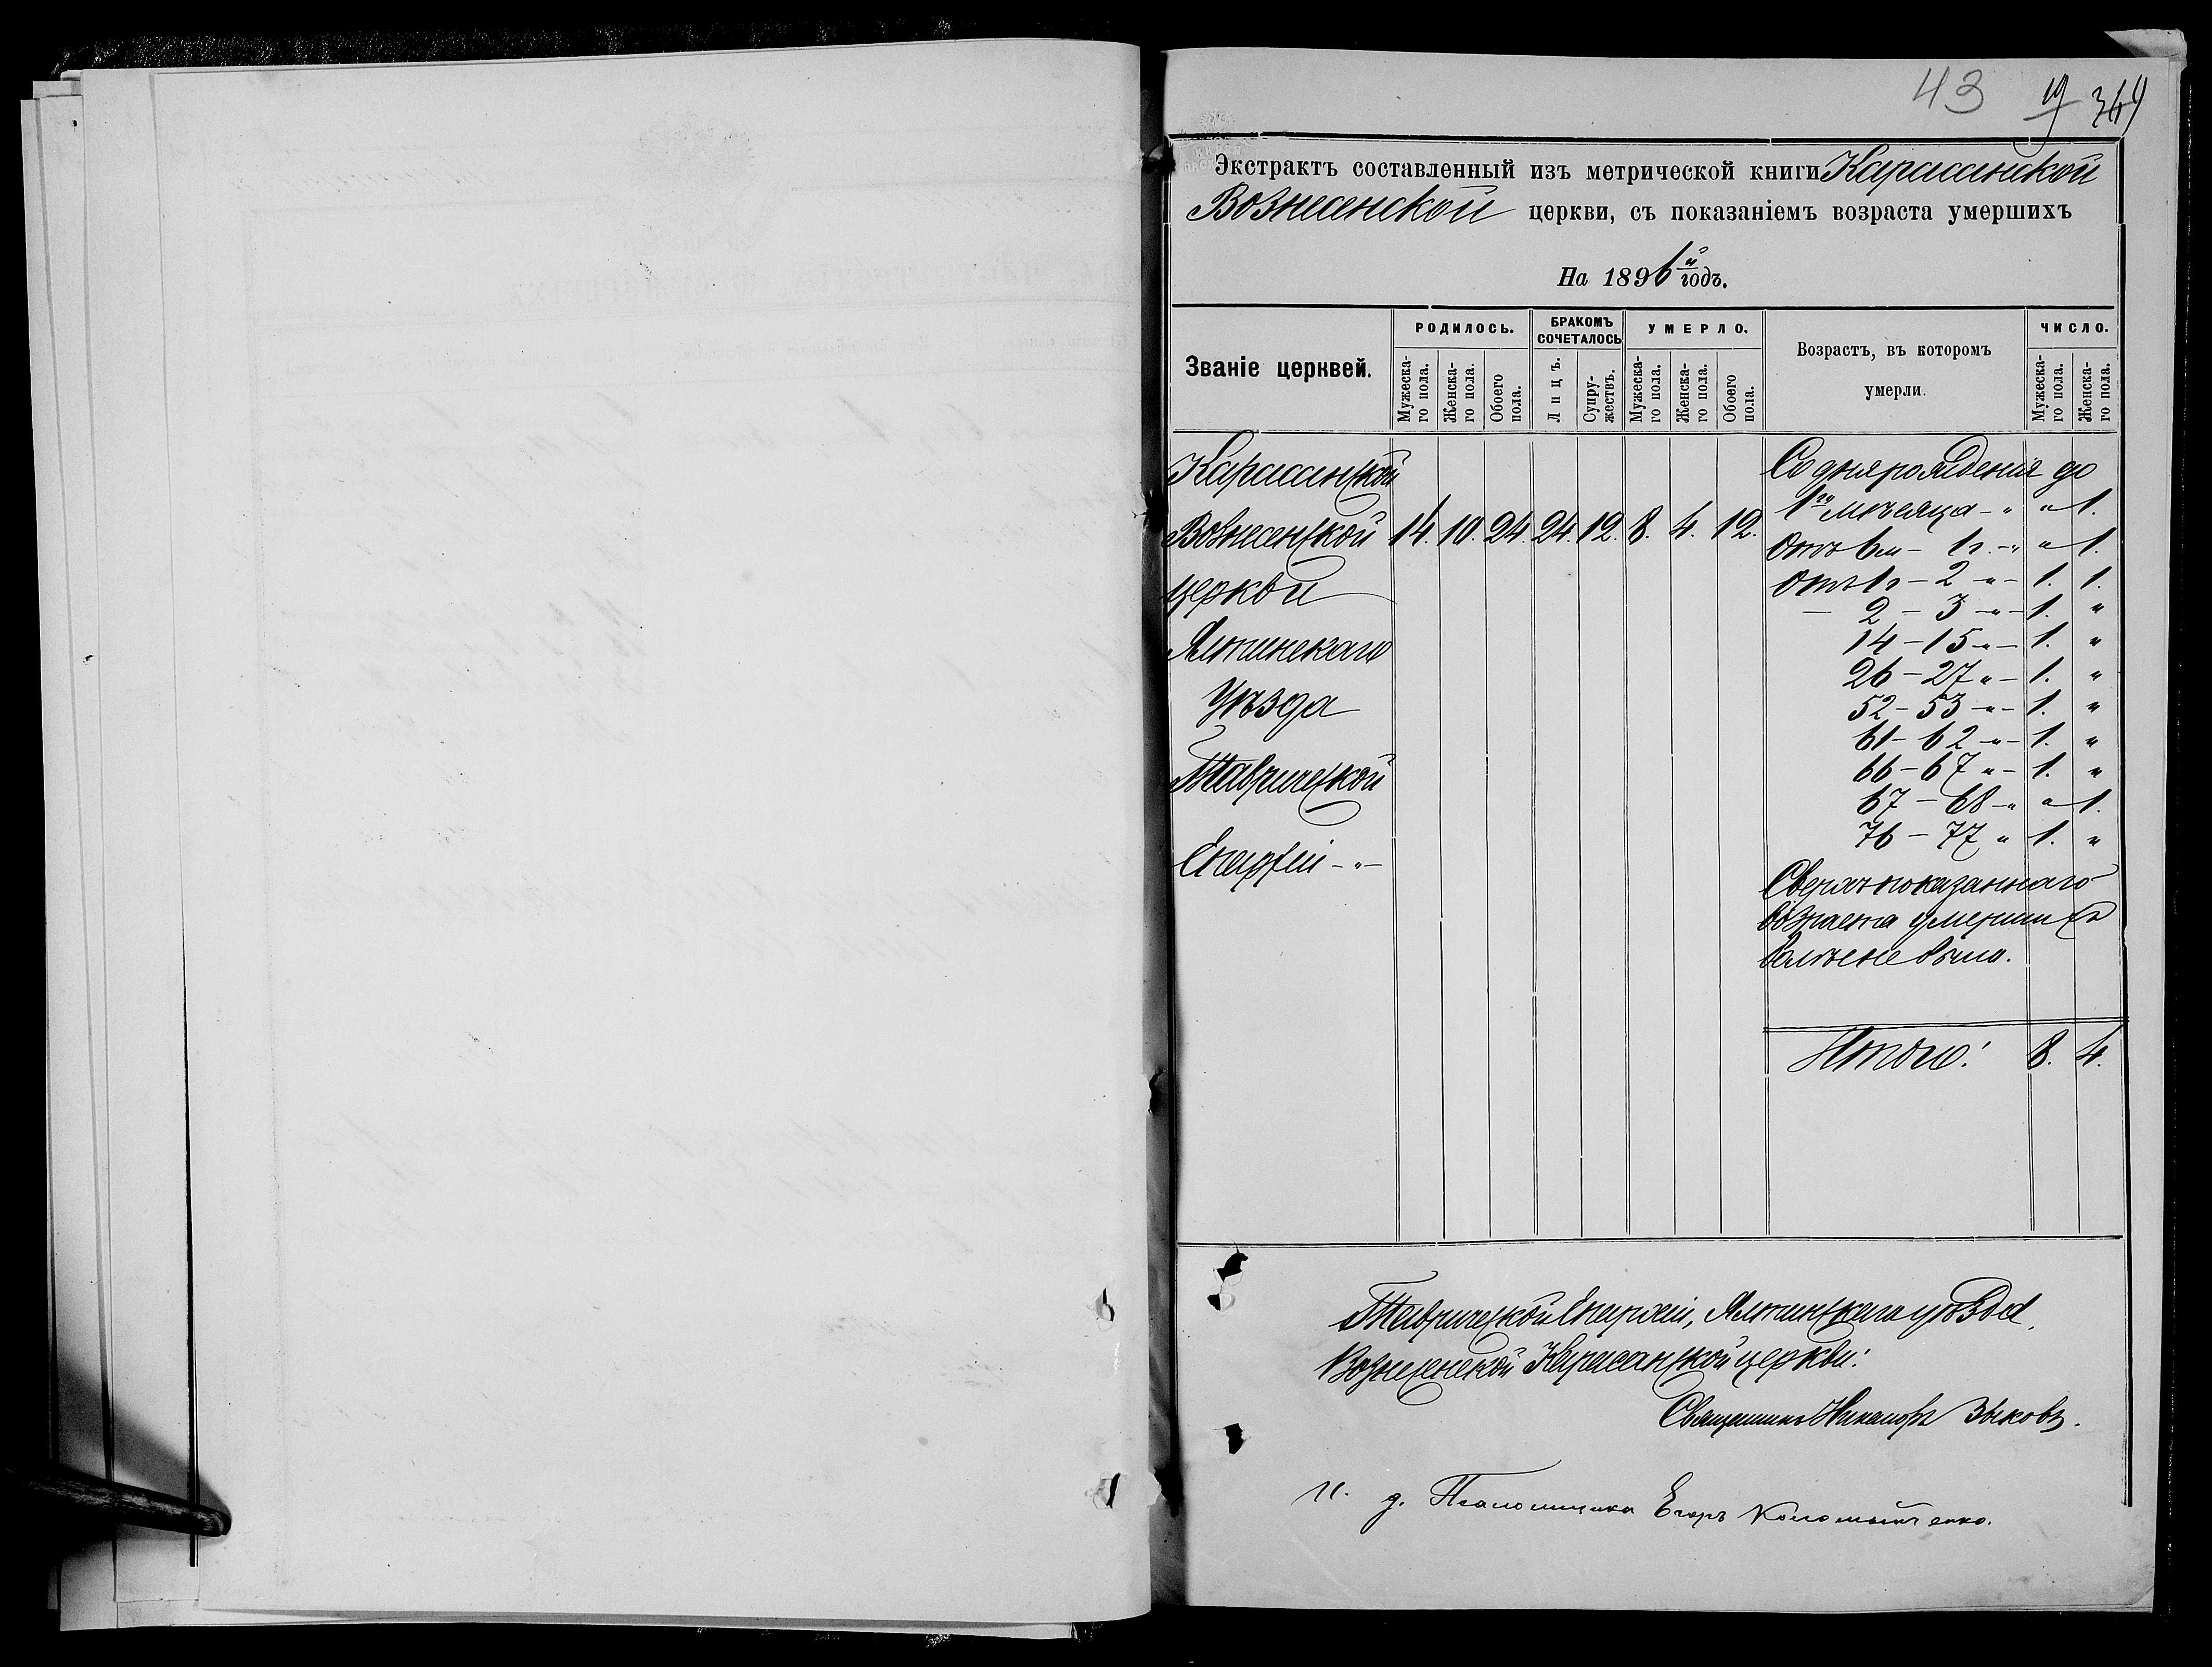 43 19 344
Экстрактъ составленный изъ метрической книги Карасанской
Вознесенской церкви, съ показаніемъ возраста умершихъ
На 1896й годъ.
Званіе церквей.
РОДИЛОСЬ.
БРАКОМЪ СОЧЕТАЛОСЬ
УМЕРЛО.
Возрастъ, въ которомъ умерли.
ЧИСЛО.
Мужеска-го пола.
Женска-го пола.
Обоего пола.
Лицъ.
Супру-жествъ.
Мужеска-го пола.
Женска-го пола.
Обоего пола.
Мужеска-го пола.
Женска-го пола.
Карасанской
Вознесенской 14. 10. 24. 24. 12. 8. 4. 12.
церкви
Ялтинскаго
Уѣзда
Таврической
Епархіи -"-
Со дня рожденія до
1го мѣсяца - " " 1.
Отъ 6м - 1г. -" " 1.
Отъ 1г - 2 -"- 1. 1.
— 2 - 3 -"- 1. "
14 - 15 -"- 1. "
26 - 27 "- 1. "
52 - 53 -"- 1. "
61 - 62 -"- 1. "
66 - 67 "- 1. "
67 - 68 -" " 1.
76 - 77 " 1. "
Сверхъ показаннаго
возраста умершихъ
болѣе не было.
Итого: 8. 4.
Таврической Епархіи, Ялтинскаго уѣзда,
Вознесенской Карасанской церкви:
Священникъ Никаноръ Зыковъ.
И. д. Псаломщика Егоръ Коломыйченко.